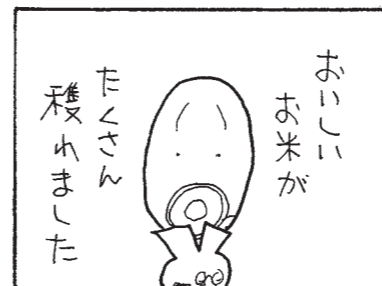 おいしい
お米が
たくさん
穫れました